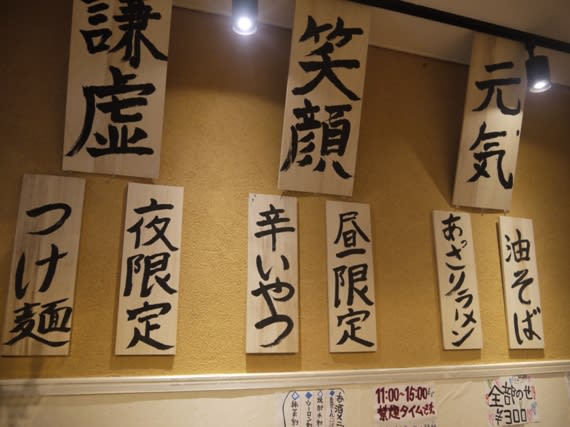 謙虚
笑顔
元気
つけ麺
夜限定
辛いやつ
昼限定
あっさりラーメン
油そば
11:00~15:00は
禁煙タイムです
全部のせ
¥300